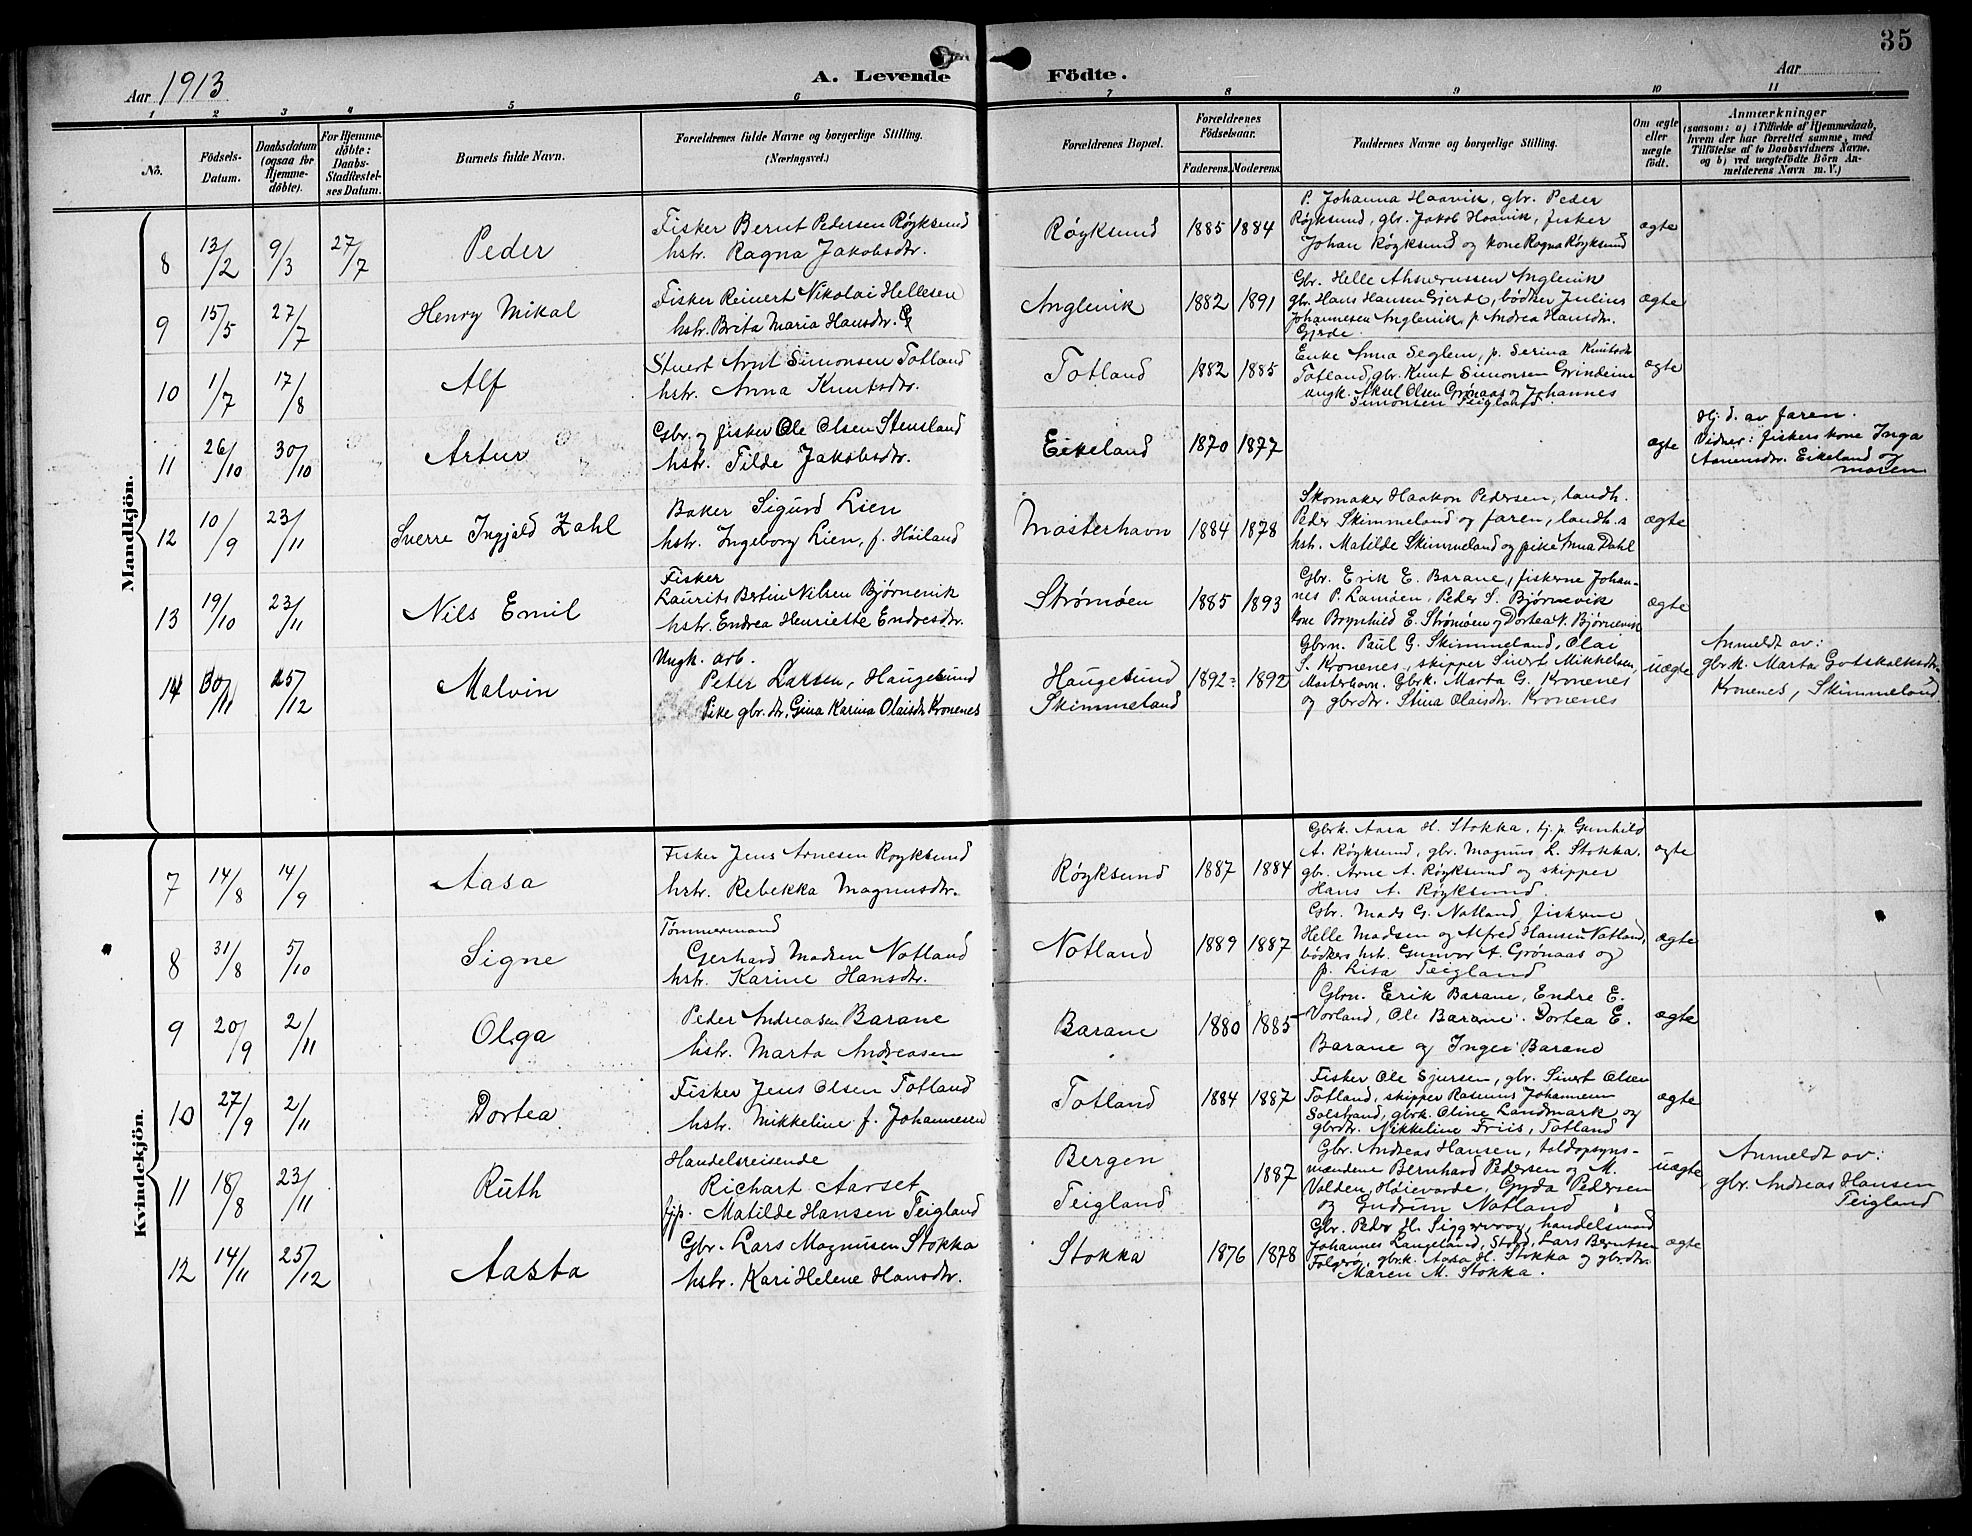 35
Aar 1913
A. Levende
Födte.
Aar
1 2 3 4 5 6 7 8 9 10 11
No.
Födsels-
Datum.
Daabsdatum
(ogsaa for
Hjemme-
döbte).
For Hjemme-
döbte:
Daabs-
Stadfæstel-
ses Datum.
Barnets fulde Navn.
Forældrenes fulde Navne og borgerlige Stilling.
(Næringsvei.)
Forældrenes Bopæl.
Forældrenes
Födselsaar.
Faderens. Moderens.
Faddernes Navne og borgerlige Stilling.
Om ægte
eller
uægte
födt.
Anmærkninger
(saasom: a) i Tilfælde af Hjemmedaab,
hvem der har forrettet samme, med
Tilföielse af to Daabsvidners Navne,
og b) ved uægtefödte Börn An-
melderens Navn m. V.)
Mandkjön.
8
13/2
9/3
27/7
Peder
Fisker Bernt Pedersen Røyksund
hstr. Ragna Jakobsdtr.
Røyksund
1885 1884
P. Johanna Haavik, gbr. Peder
Røyksund, gbr. Jakob Haavik, fisker
Johan Røyksund og kone Ragna Røyksund
ægte
9
15/5
27/7
Henry Mikal
Fisker Reinert Nikolai Hellesen
hstr. Brita Maria Hansdtr. G
Anglevik
1882 1891
Gbr. Helle Ahsverussen Anglevik
gbr. Hans Hansen Gjerde, bødker Julius
Johannesen Anglevik, p. Andrea Hansdtr.
Gjrde.
ægte
10
1/7
17/8
Alf
Stuert Arnt Simonsen Totland
hstr. Anna Knutsdtr.
Totland
1882 1885
Enke Anna Seglem, p. Serina Knutsdtr
Totland, gbr. Knut Simonsen Grindeim
ungk. Aksel Olsen Grønaas og Johannes
Simonsen Teigland.
ægte
11
26/10
30/10
Artur
Gbr. og fisker Ole Olsen Stensland
hstr. Tilde Jakobsdtr.
Eikeland
1870 1877
ægte
Hj. d. av faren.
Vidner: fiskerskone Inga
Eikeland og
moren
12
10/9
23/11
Sverre Ingjald Zahl
Baker Sigurd Lien
hstr. Ingeborg Lien, f. Høiland
Mosterhavn
1884 1878
Skomaker Haakon Pedersen, landh.
Peder Skimmeland og faren, landh.s
hstr. Matilde Skimmeland og pike Anna Dahl
ægte
13
19/10
23/11
Nils Emil
Fisker
Laurits Bertin Nilsen Bjørnevik
hstr. Endrea Henriette Endresdtr.
Strømøen
1885 1893
Gbr. Erik E. Barane, fiskerne Johan-
nes P. Lamøen, Peder S. Bjørnevik
kone Brynhild E. Strømøen og Dortea N. Bjørnevik
ægte
14
30/11
25/12
Malvin
Ungk. arb.
Peter Larsen, Haugesund
Pike gbr. dtr. Gina Karina Olaisdtr Kronenes
Haugesund
Skimmeland
1892 1892
Gbrn. Paul G. Skimmeland, Olai
S. Kronenes, skipper Sivert Mikkelsen,
Mosterhavn. Gbrk. Marta G. Kronenes
og gbrdtr. Stina Olaisdtr. Kronenes
uægte
Anmeldt av:
gbrk. Marta Gotskalksdtr.
Kronenes, Skimmeland
Kvindekjön.
7
14/8
14/9
Aasa
Fisker Jens Arnesen Royksund
hstr. Rebekka Magnusdtr.
Røyksund
1887 1884
Gbrk. Aasa H. Stokka, tj. p. Gunhild
A. Røyksund, gbr. Magnus L. Stokka,
gbr. Arne A. Røyksund og skipper
Hans A. Røyksund.
ægte
8
31/8
5/10
Signe
Tømmermand
Gerhard Madsen Notland
hstr. Karine Hansdtr.
Notland
1889 1887
Gbr. Mads G. Notland, fiskerne
Helle Madsen og Alfred Hansen Notland,
bødkers hstr. Gunvor A. Grønaas og
p. Lisa Teigland
ægte
9
20/9
2/11
Olga
Peder Andreasen Barane
hstr. Marta Andreasen
Barane
1880 1885
Gbrn. Erik Barane, Endre E.
Vorland, Ole Barane. Dortea E.
Barane og Inger Barane
ægte
10
27/9
2/11
Dortea
Fisker Jens Olsen Totland
hstr. Mikkeline f. Johannesen
Totland
1884 1887
Fisker Ole Sjursen, gbr. Sivert Olsen
Totland, skipper Rasmus Johannesen
Solstrand, gbrk. Oline Landmark og
gbrdtr. Mikkeline Friis, Totland
ægte
11
18/8
23/11
Ruth
Handelsreisende
Richart Aarset
tjp. Matilde Hansen Teigland
Bergen
Teigland
1887
Gbr. Andreas Hansen, toldopsyns-
mændene Bernhard Pedersen og M.
Valden, Høievarde, Gyda Pedersen
og Gudrun Notland
uægte
Anmeldt av:
gbr. Andreas Hansen
Teigland
12
14/11
25/12
Aasta
Gbr. Lars Magnusen Stokka
hstr. Kari Helene Hansdtr.
Stokka
1876 1878
Gbr. Peder H. Siggervaag, handelsmand
Johannes Langeland, Stord, Lars Berntsen
Folgerø, gbrk. Aasa H. Stokka og gbrdtr.
Maren M. Stokka.
ægte